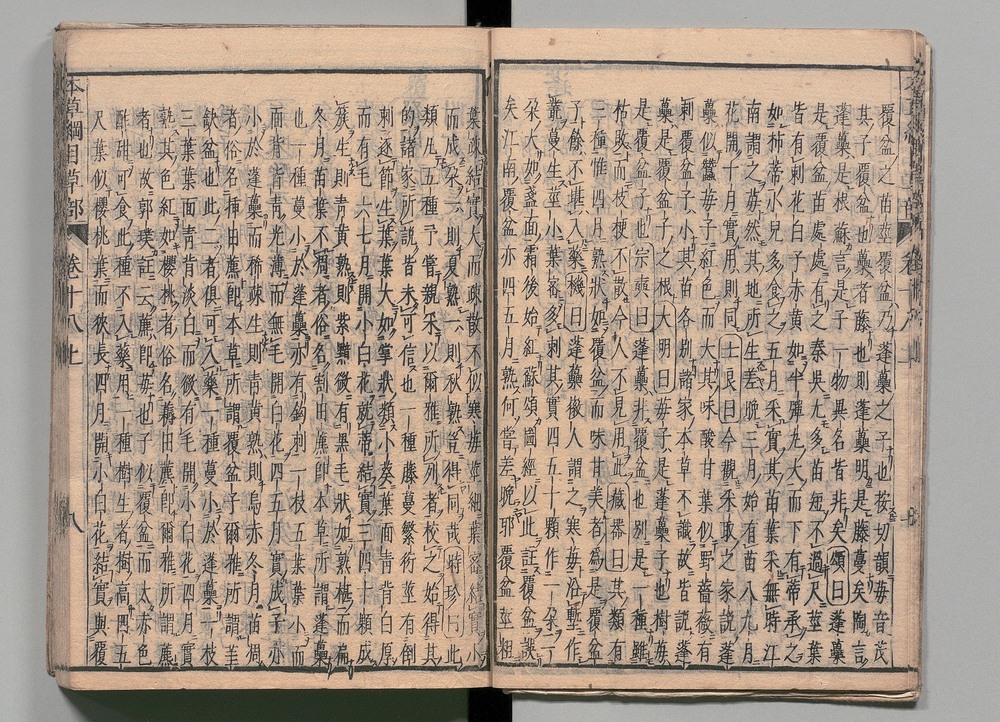 覆盆之苗莖覆盆乃蓬蘽之子也按切韻苺音茂
其子覆盆也蘽者藤也則蓬蘽明是藤蔓矣陶言
蓬蘽是根蘇言是子一物異名皆非矣頌曰蓬蘽
是覆盆苗處處有之秦吳尤多苗短不過尺莖葉
皆有刺花白子赤黄如半彈丸大而下有蒂承之
如柿蒂小兒多食之五月采實其苗葉采無時江
南謂之苺然其地所生差晚三月始有苗八九月
花開十月實用則同士良曰今觀采取之家說蓬
蘽似蠶苺子紅色而大其味酸甘葉似野薔薇有
刺覆盆子小其苗各别諸家本草不識故皆說蓬
蘽是覆盆子之根大明曰蓬蘽子是蓬蘽子也樹苺
是覆盆子也宗奭曰蓬蘽非覆盆也别是一種雖
枯敗而枝梗不散今人不見用此藏器曰其類有
三種惟四月熟狀如覆盆而味甘美者爲是覆盆
子餘不堪入藥機曰蓬蘽徽人謂之寒苺沿塹作
叢蔓生莖小葉密多刺其實四五十顆作一朶一
朶大如盞面霜後始紅蘇頌圖經以此註覆盆誤
矣江南覆盆亦四五月熟何嘗差晚耶覆盆莖粗
葉疎結實大而疎散不似寒苺莖細葉密結實小
而成朶一則夏熟一則秋熟豈得同哉時珍曰此
類凡五種予嘗親采以爾雅所列者校之始得其
的諸家所說皆未可信也一種藤蔓繁衍莖有倒
刺逐節生葉葉大如掌狀類小葵葉面青背白厚
而有毛六七月開小白花就蒂結實三四十顆成
簇生則青黄熟則紫黯微有黑毛狀如熟椹而扁
冬月苗葉不凋者俗名割田藨即本草所謂蓬蘽
也一種蔓小於蓬蘽亦有鈎刺一枝五葉葉小而
面背皆青光薄而無毛開白花四五月實成子亦
小於蓬蘽而稀疎生則青黄熟則烏赤冬月苗凋
者俗名揷田藨即本草所謂覆盆子爾雅所謂茥
缺盆也此二者俱可入藥一種蔓小於蓬蘽一枝
三葉葉面青背淡白而微有毛開小白花四月實
熟其色紅如櫻桃者俗名薅田藨即爾雅所謂藨
者也故郭璞註云藨即苺也子似覆盆而大赤色
酢甜可食此種不入藥用一種樹生者樹高四五
尺葉似櫻桃葉而狹長四月開小白花結實與覆
本草綱目草部
卷十八上
八